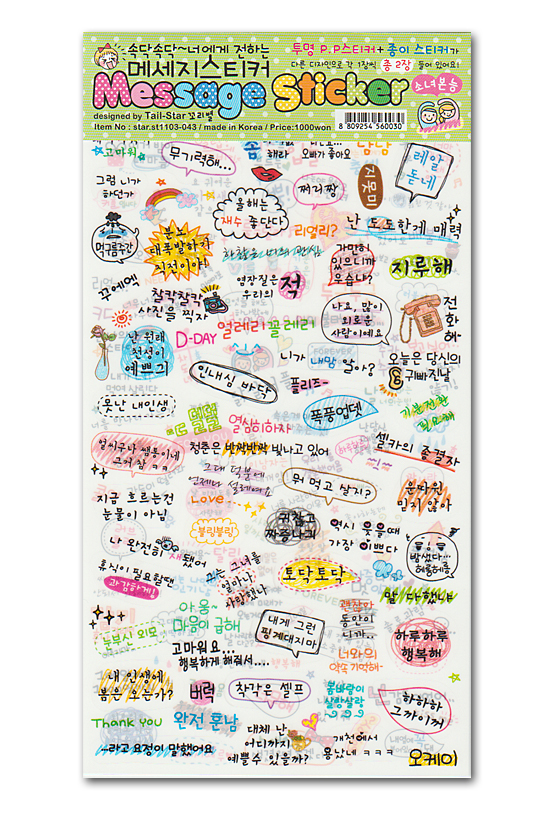 속닥속닥~너에게 전하는
메세지스티커
투명 P.P스티커+종이 스티커가
다른 디자인으로 각 1장씩 총 2장 들어 있어요!
Message Sticker
소녀본능
designed by Tail-Star 꼬리별
Item No : star.st1103-043 / made in Korea / Price:1000won
8 809254 560030
고마워
무기력해...
해라
오빠가 좋아요
그럼 니가
하던가
쩌리짱
지못미
레알
돋네
올해는
재수 좋단다
난 도도한게 매력
먹구름주간
분노
대폭발하기
직전이야!
리얼리?
가만히
있으니까
우습냐?
지루해
꾸에엑
찰칵찰칵
사진을 찍자
영장질은
우리의 적
나요, 많이
외로운
사람이에요
전
화
해
난 원래
천성이
예쁘긔
D-DAY
얼레리꼴레리
니가 내맘 알아?
오늘은 당신의
귀빠진날
인내심 바닥
플리즈~
못난 내인생
폭풍업뎃
기분전환
필요해
열심히하자
셀카의 종결자
얼씨구나 쌤통이네
그켜 참 ㅋㅋ
청춘은 반짝반짝 빛나고 있어
그대 덕분에
언제나 설레여요
뭐 먹고 살지?
운따윈
믿지 않아
지금 흐르는건
눈물이 아님
Love...
블링블링
귀찮고
짜증나긔
역시 웃을때
가장 이쁘다
밤샜다...
헤롱헤롱
나 완전히 새됐어
휴식이 필요할땐
과감하게!
나는 그녀를
얼마나
사랑했나
토닥토닥
말 다했냐
눈부신 외모
아웅~
마음이 급해
내게 그런
핑계대지마
괜찮아
동안이
니가..
너와의
약속 기억해~
하루하루
행복해
고마워요...
행복하게 해줘서....
내 인생에
봄은 오는가?
버럭
착각은 셀프
봄바람이
살랑살랑
하하하
그까이꺼
Thank You
완전 훈남
~라고 요정이 말했어요
대체 난
어디까지
예쁠 수 있을까?
개천에서
용났네 ㅋㅋㅋ
오케이